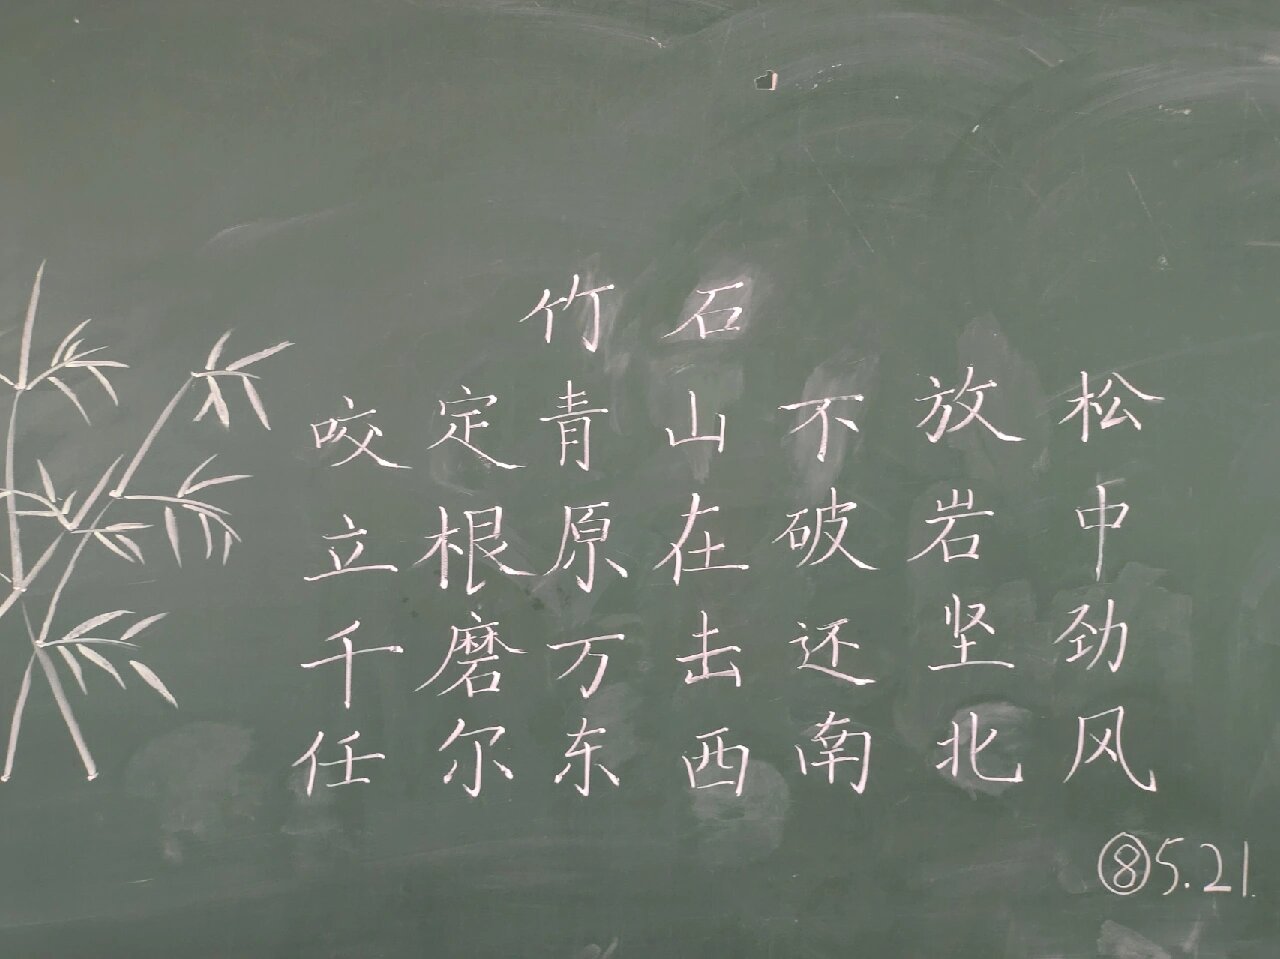 竹石
咬定青山不放松
立根原在破岩中
千磨万击还坚劲
任尔东西南北风
⑧5.21.